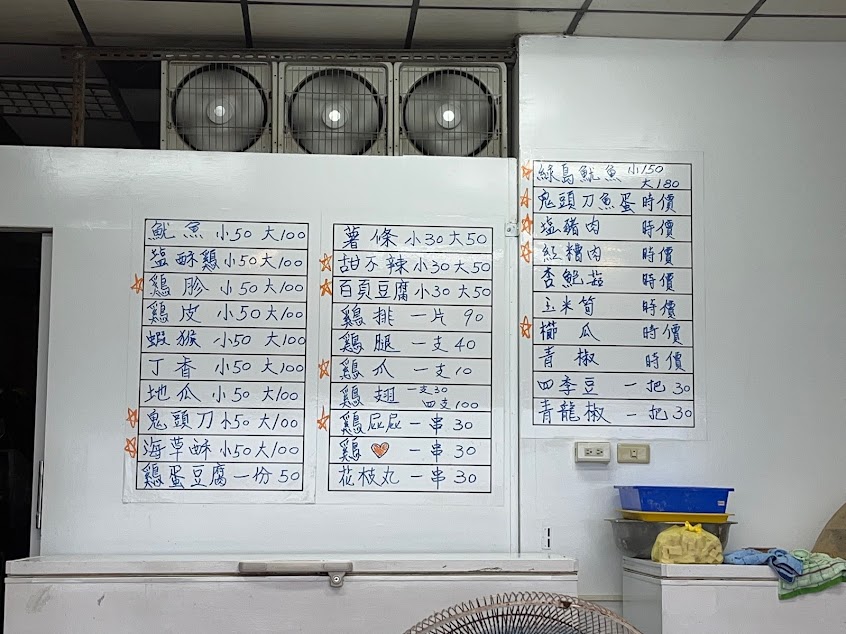 魷魚 小50 大100
塩酥鷄 小50 大100
鷄胗 小50 大100
鷄皮 小50 大100
蝦猴 小50 大100
丁香 小50 大100
地瓜 小50 大100
鬼頭刀 小50 大100
海草酥 小50 大100
鷄蛋豆腐 一份 50
薯條 小30 大50
甜不辣 小30 大50
百頁豆腐 小30 大50
鷄排 一片 90
鷄腿 一支 40
鷄爪 一支 10
鷄翅 一支30
四支100
鷄屁屁 一串 30
鷄❤ 一串 30
花枝丸 一串 30
綠島魷魚 小150
大180
鬼頭刀魚蛋 時價
塩豬肉 時價
紅糟肉 時價
杏鮑菇 時價
玉米筍 時價
櫛瓜 時價
青椒 時價
四季豆 一把 30
青龍椒 一把 30